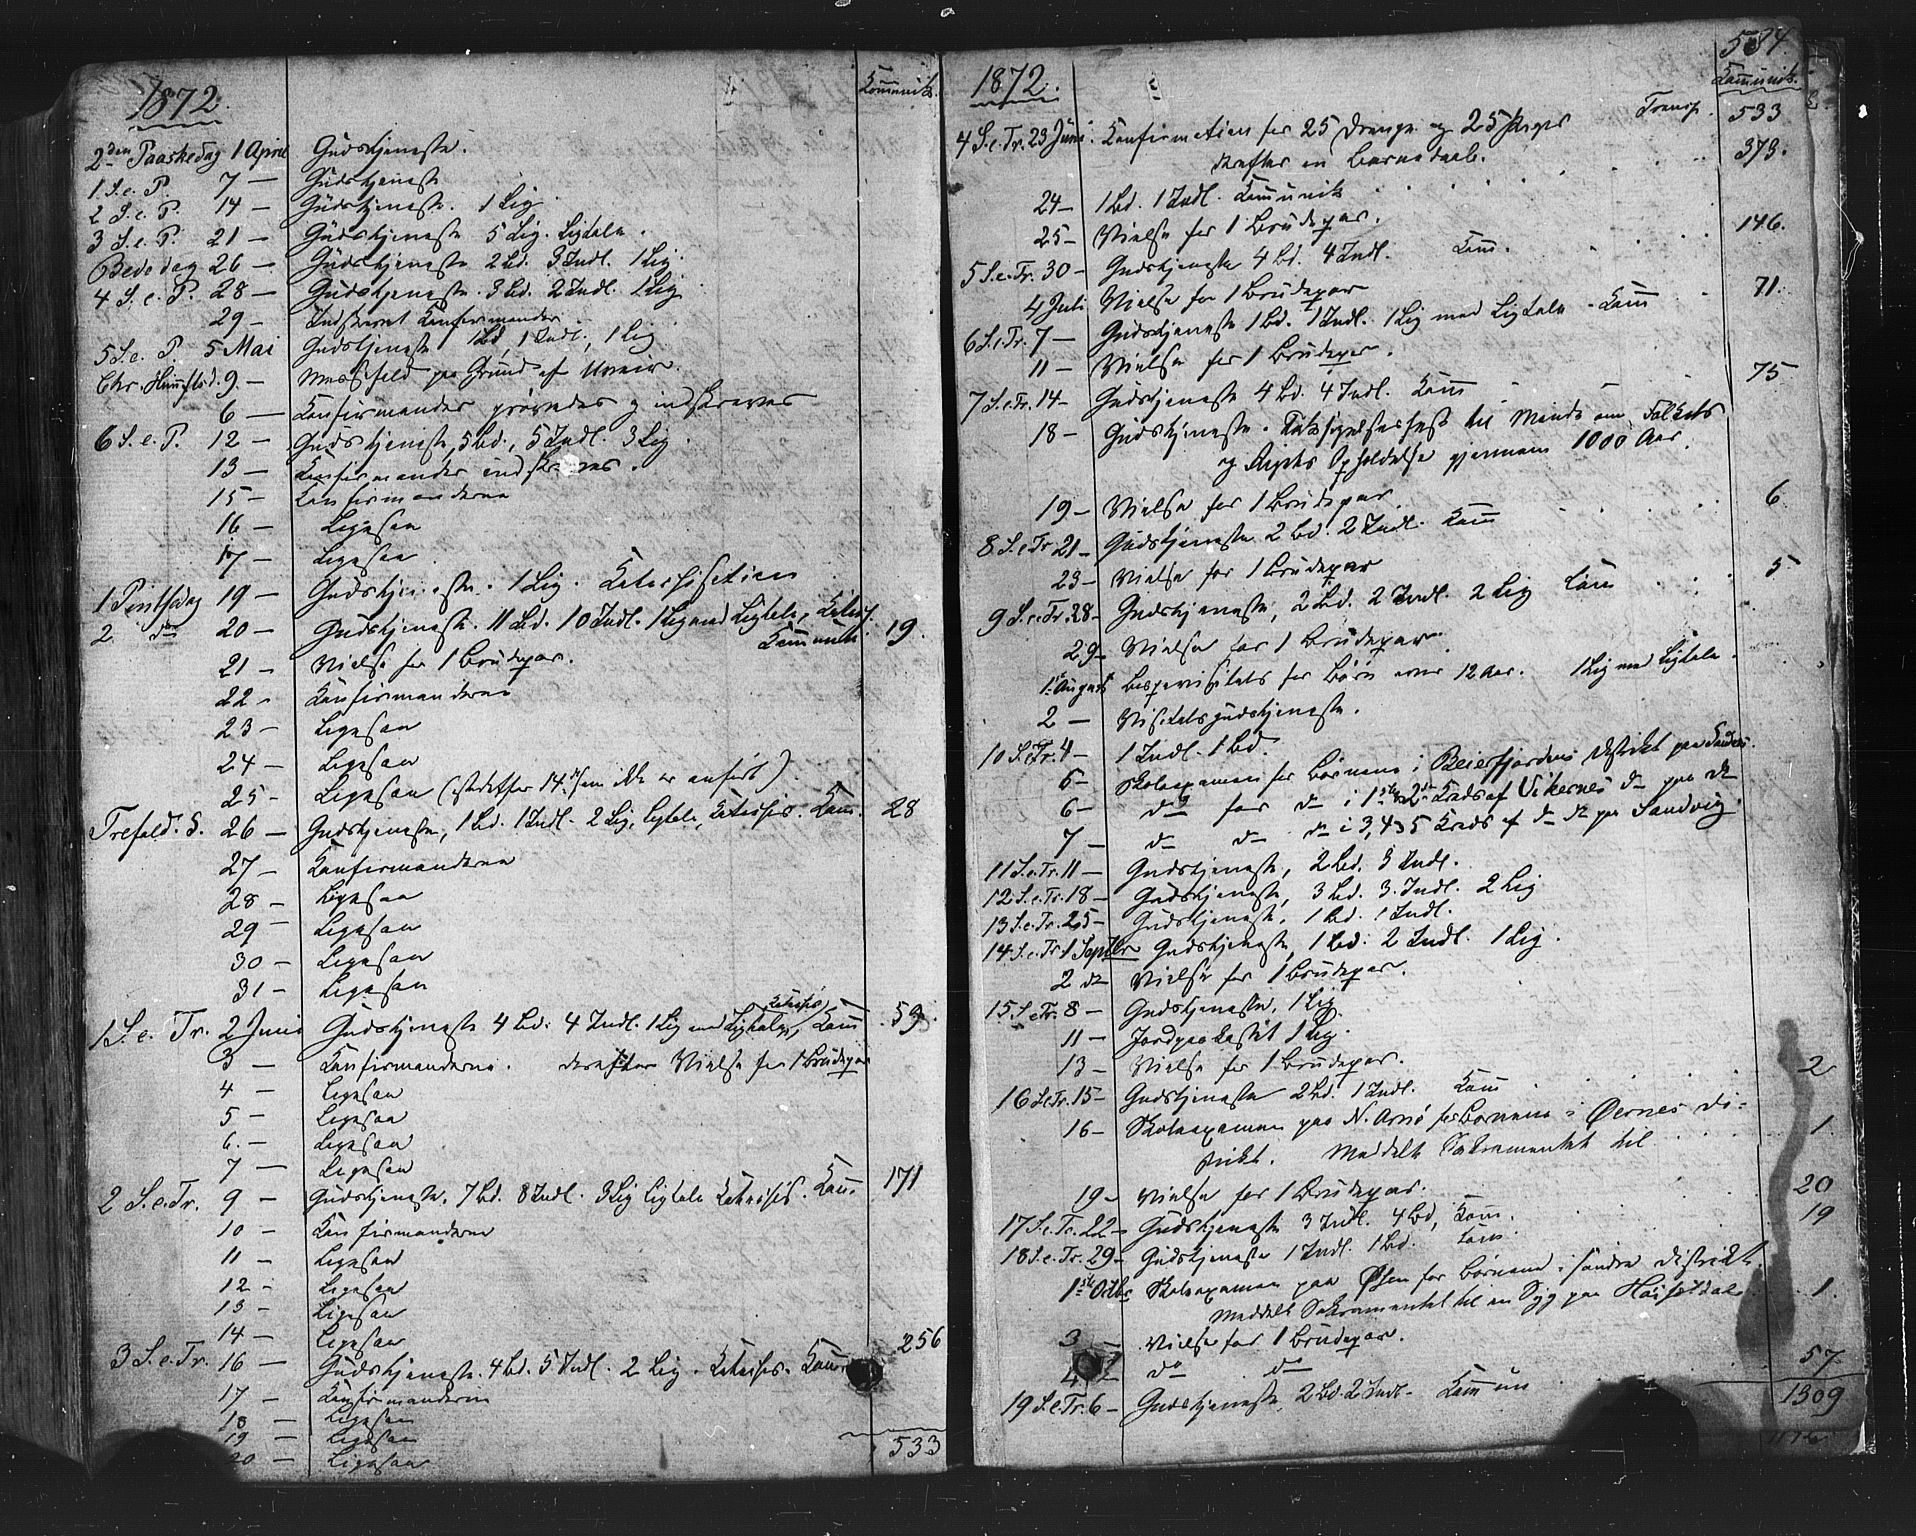 1872.
Kommunik.
2den Paaskedag 1 April Gudstjeneste.
1 S. e. P. 7 — Gudstjeneste
2 S. e. P. 14 — Gudstjeneste. 1 Lig.
3 S. e. P. 21 — Gudstjeneste 5 Lig. Ligtale.
Bededag 26 — Gudstjeneste 2 Bd. 3 Indl. 1 Lig.
4 S. e. P. 28 — Gudstjeneste. 3 Bd. 2 Indl. 1 Lig.
29 — Indskrevet Konfirmander
5 S. e. P. 5 Mai Gudstjeneste 1 Bd, 1 Indl., 1 Lig.
Chr. Himmelfd. 9 — Messefald paa Grund af Uveir.
6 — Konfirmander prøvedes og indskreves
6 S. e. P. 12 — Gudstjeneste, 5 Bd., 5 Indl. 3 Lig.
13 — Konfirmander indskreves.
15 — Konfirmanderne
16 — Ligesaa
17 — Ligesaa
1 Pintsedag 19 — Gudstjeneste. 1 Lig. Katechisation
2 do 20 — Gudstjeneste. 11 Bd. 10 Indl. 1 Lig med Ligtale, Katech.
Kommunik. 19.
21 — Vielse for 1 Brudepar.
22 - Konfirmanderne
23 — Ligesaa
24 — Ligesaa
25 - Ligesaa (istedetfor 14de som ikke er anført).
Trefold. S. 26 — Gudstjeneste, 1 Bd. 1 Indl. 2 Lig, Ligtale, Katechis. Kom. 28
27 — Konfirmanderne
28 — Ligesaa
29 — Ligesaa
30 — Ligesaa
31 — Ligesaa
1 S. e. Tr. 2 Juni Gudstjeneste 4 Bd. 4 Indl. 1 Lig med Ligtale, Katechis, Kom. 59.
3 — Konfirmanderne. derefter Vielse for 1 Brudepar
4 — Ligesaa
5 — Ligesaa
6 — Ligesaa
7 — Ligesaa
2 S. e. Tr. 9 — Gudstjeneste. 7 Bd. 8 Indl. 3 Lig Ligtale Katechis. Kom. 171
10 — Konfirmanderne
11 — Ligesaa
12 — Ligesaa
13 — Ligesaa
14 — Ligesaa
3 S. e. Tr. 16 — Gudstjeneste. 4 Bd. 5 Indl. 2 Lig. Katechis. Kom. 256
17 — Konfirmanderne
18 — Ligesaa
19 — Ligesaa
20 — Ligesaa
533
584.
1872.
Kommunik.
Transp. 533
4 S. e. Tr. 23 Juni. Konfirmation for 25 Drenge og 25 Piger
derefter en Barnedaab. 373.
24 — 1 Bd. 1 Indl. Kommunik
25 — Vielse for 1 Brudepar.
5 S. e. Tr. 30 — Gudstjeneste 4 Bd. 4 Indl. Kom. 146.
4 Juli Vielse for 1 Brudepar
6 S. e. Tr. 7 — Gudstjeneste 1 Bd. 1 Indl. 1 Lig med Ligtale - Kom 71.
11 — Vielse for 1 Brudepar.
7 S. e. Tr. 14 — Gudstjeneste 4 Bd. 4 Indl. Kom 75
18 — Gudstjeneste. Taksigelsesfest til Minde om Folkets
og Rigets Opholdelse gjennem 1000 Aar.
19 — Vielse for 1 Brudepar
8 S. e. Tr. 21 — Gudstjeneste 2 Bd. 2 Indl. Kom 6
23 — Vielse for 1 Brudepar
9 S. e. Tr. 28 — Gudstjeneste, 2 Bd. 2 Indl. 2 Lig Kom 5
29 — Vielse for 1 Brudepar
1st August Bispevisitats for Børn over 12 Aar. 1 Lig med Ligtale.
2 — Visitatsgudstjeneste.
10 S. e. Tr. 4 — 1 Indl. 1 Bd.
5 — Skoleexamen for Børnene i Beierfjordens Distrikt paa Sandnes.
6 — do for do i 1ste og 2de Kreds af Vikernes do paa do
7 — do do do i 3, 4 og 5 Kreds af do do paa Sandvig.
11 S. e. Tr. 11 — Gudstjeneste, 2 Bd. 3 Indl.
12 S. e. Tr. 18 — Gudstjeneste, 3 Bd. 3 Indl. 2 Lig
13 S. e. Tr. 25 — Gudstjeneste. 1 Bd. 1 Indl.
14 S. e. Tr. 1 Septbr Gudstjeneste, 1 Bd. 2 Indl. 1 Lig.
2 do Vielse for 1 Brudepar.
15 S. e. Tr. 8 — Gudstjeneste, 1 Lig.
11 — Jordpaakastet 1 Lig.
13 — Vielse for 1 Brudepar.
16 S. e. Tr. 15 — Gudstjeneste 2 Bd. 1 Indl. Kom 2
16 — Skoleexamen paa N. Arnø for Børnene i Øernes Di-
strikt. Meddelt Sakramentet til 1.
19 — Vielse for 1 Brudepar.
17 S. e. Tr. 22 — Gudstjeneste 3 Indl. 4 Bd, Kom. 20
18 S. e. Tr. 29 — Gudstjeneste 1 Indl. 1 Bd. Kom. 19
1ste Octbr Skoleexamen paa Øsen for Børnene i søndre Distrikt.
Meddelt Sakramentet til en Syg paa 1.
3 — Vielse for 1 Brudepar.
4 — do do
19 S. e. Tr. 6 — Gudstjeneste, 2 Bd. 2 Indl. Kommun 57
1309